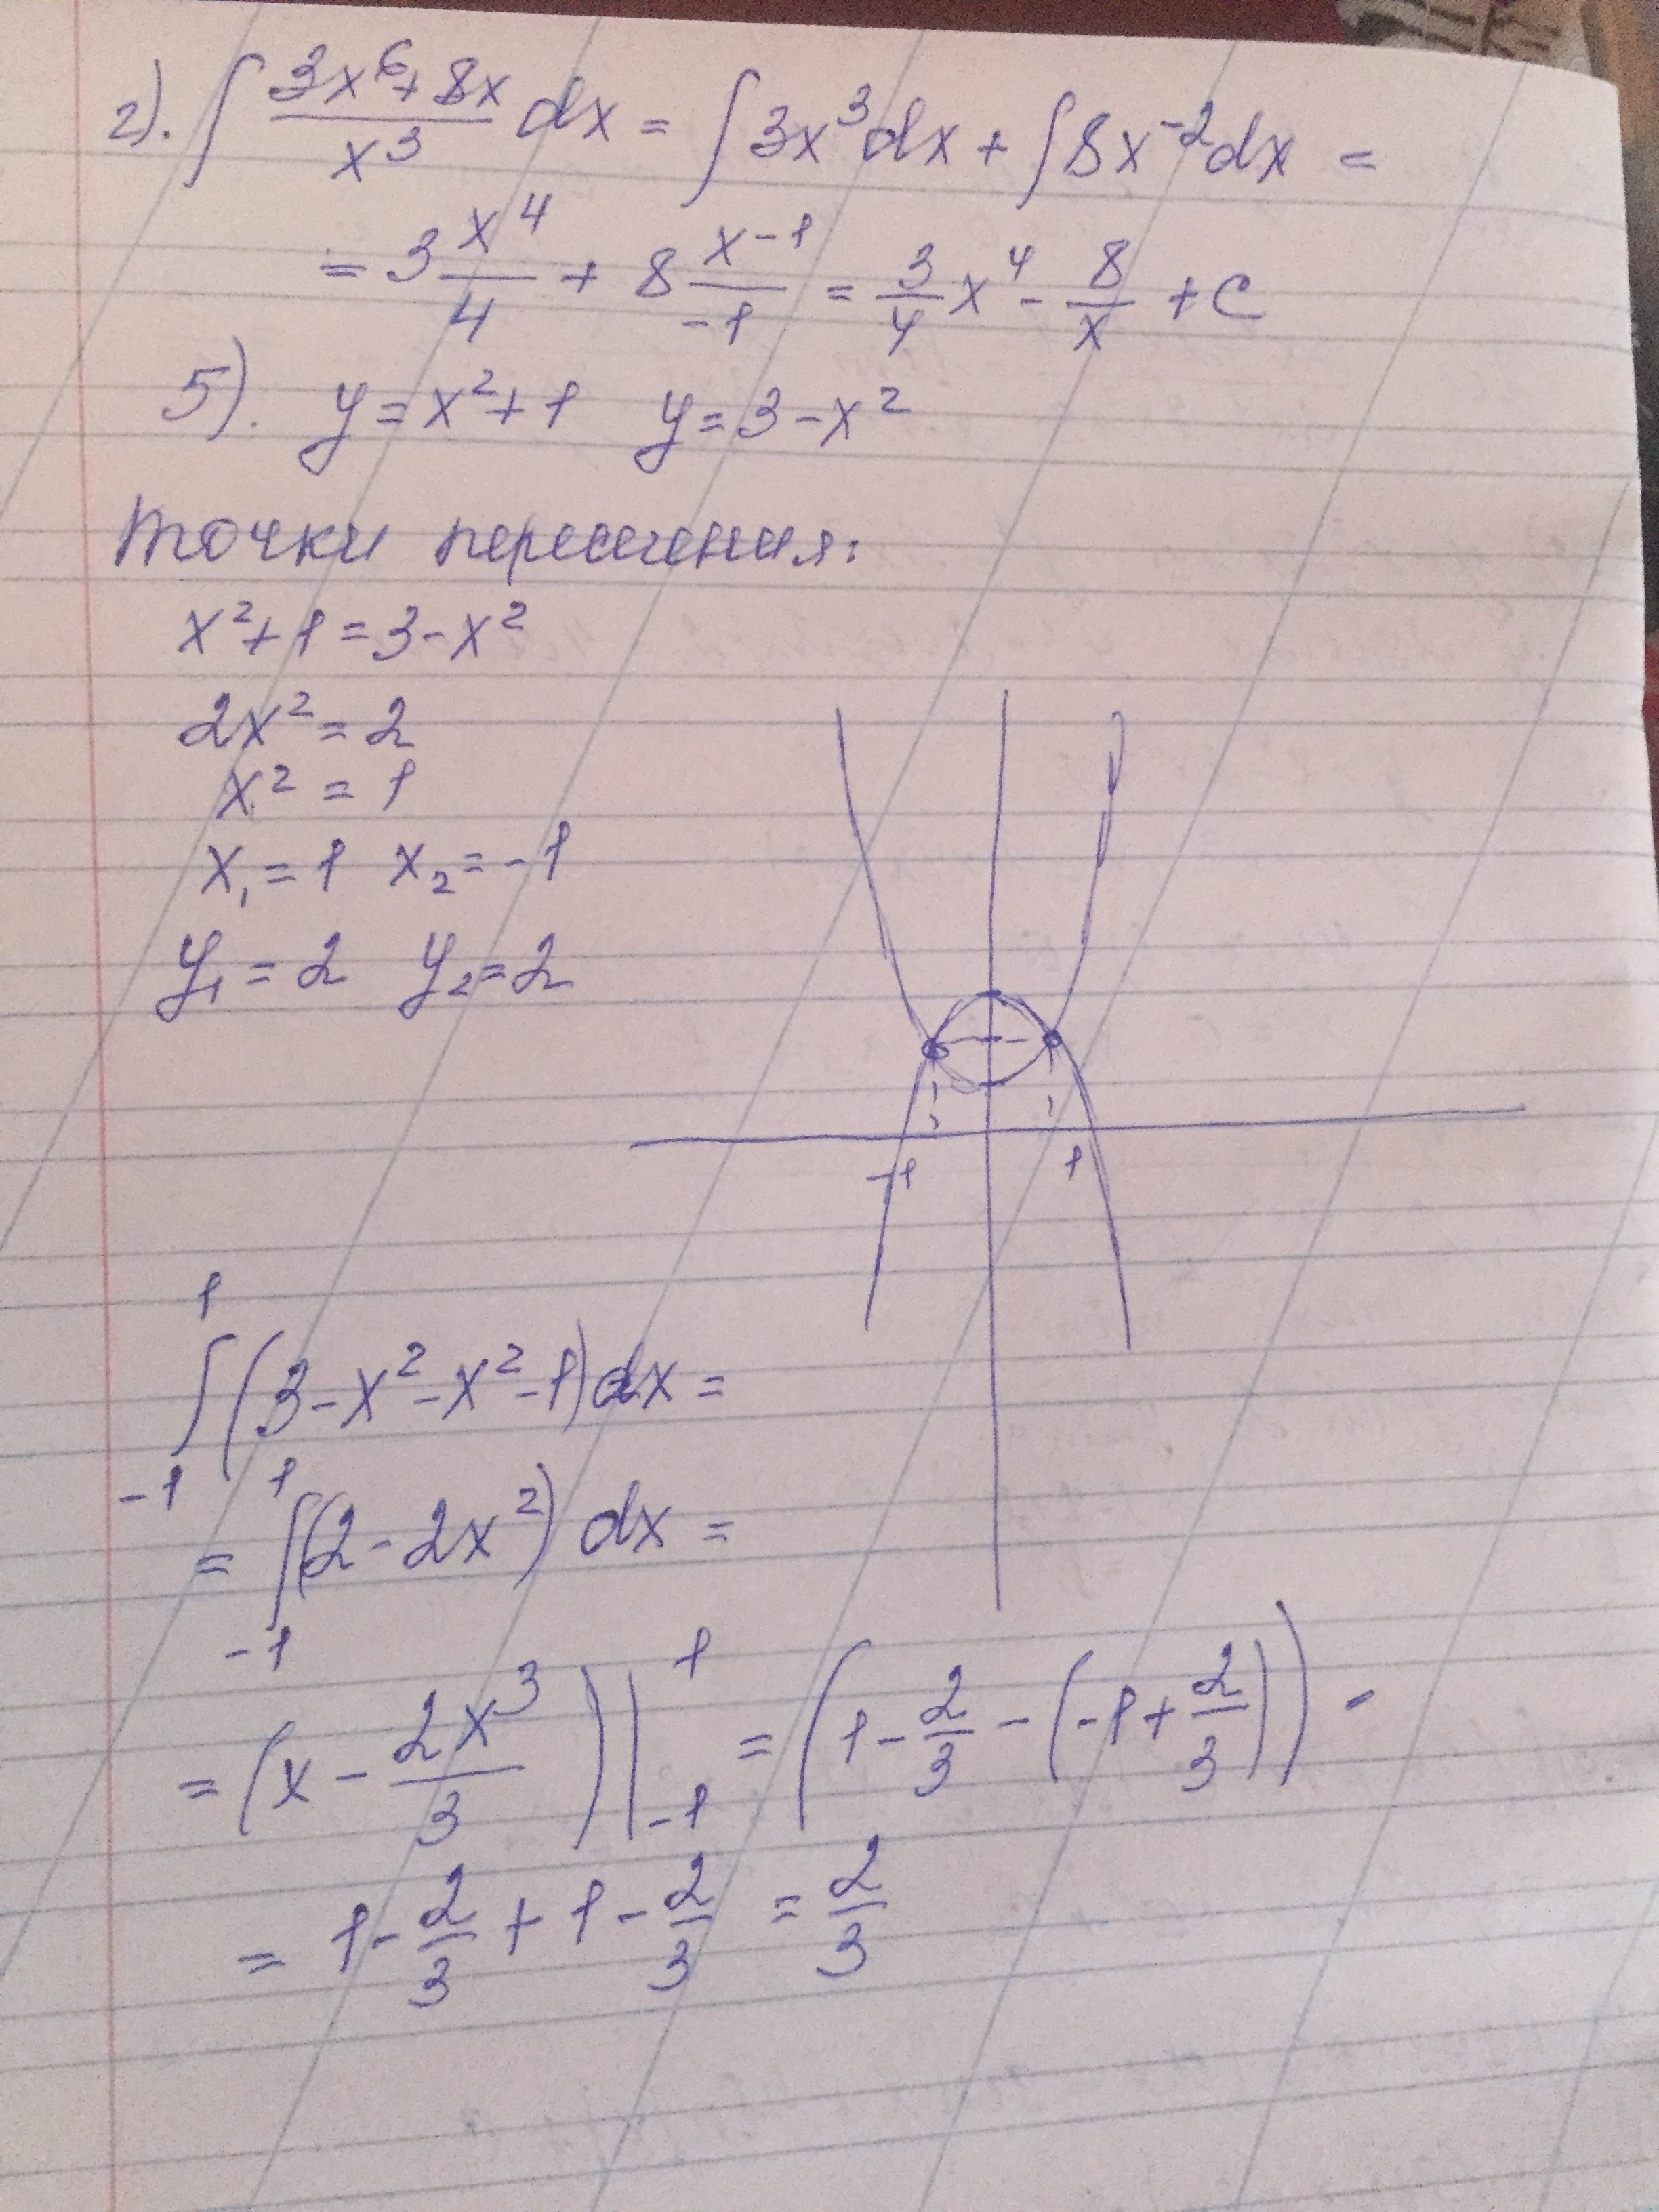 2). ∫ (3x⁶ + 8x)/x³ dx = ∫ 3x³ dx + ∫ 8x⁻² dx =
= 3 x⁴/4 + 8 x⁻¹/-1 = 3/4 x⁴ - 8/x + C
5). y = x² + 1   y = 3 - x²
Точки пересечения:
x² + 1 = 3 - x²
2x² = 2
x² = 1
x₁ = 1   x₂ = -1
y₁ = 2   y₂ = 2
-1   1
∫₋₁¹ (3 - x² - x² - 1) dx =
= ∫₋₁¹ (2 - 2x²) dx =
= (x - 2x³/3) |₋₁¹ = (1 - 2/3 - (-1 + 2/3)) -
= 1 - 2/3 + 1 - 2/3 = 2/3